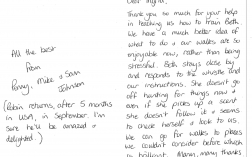 All the best
from
Penny, Mike & Sam
Johnson
(Robin returns, after 5 months
in USA, in September. I'm
sure he'll be amazed &
delighted.)
Thank you so much for your help
in teaching us how to train Beth
We have a much better idea of
what to do & our walks are so
enjoyable now, rather than being
stressful. Beth stays close by
and responds to the whistle and
our instructions. She doesn't go
off hunting for things now &
even if she picks up a scent
she doesn't follow it & seems
to check herself & look to us.
We can go for walks to places
we couldn't consider before
brilliant. Many, many thanks